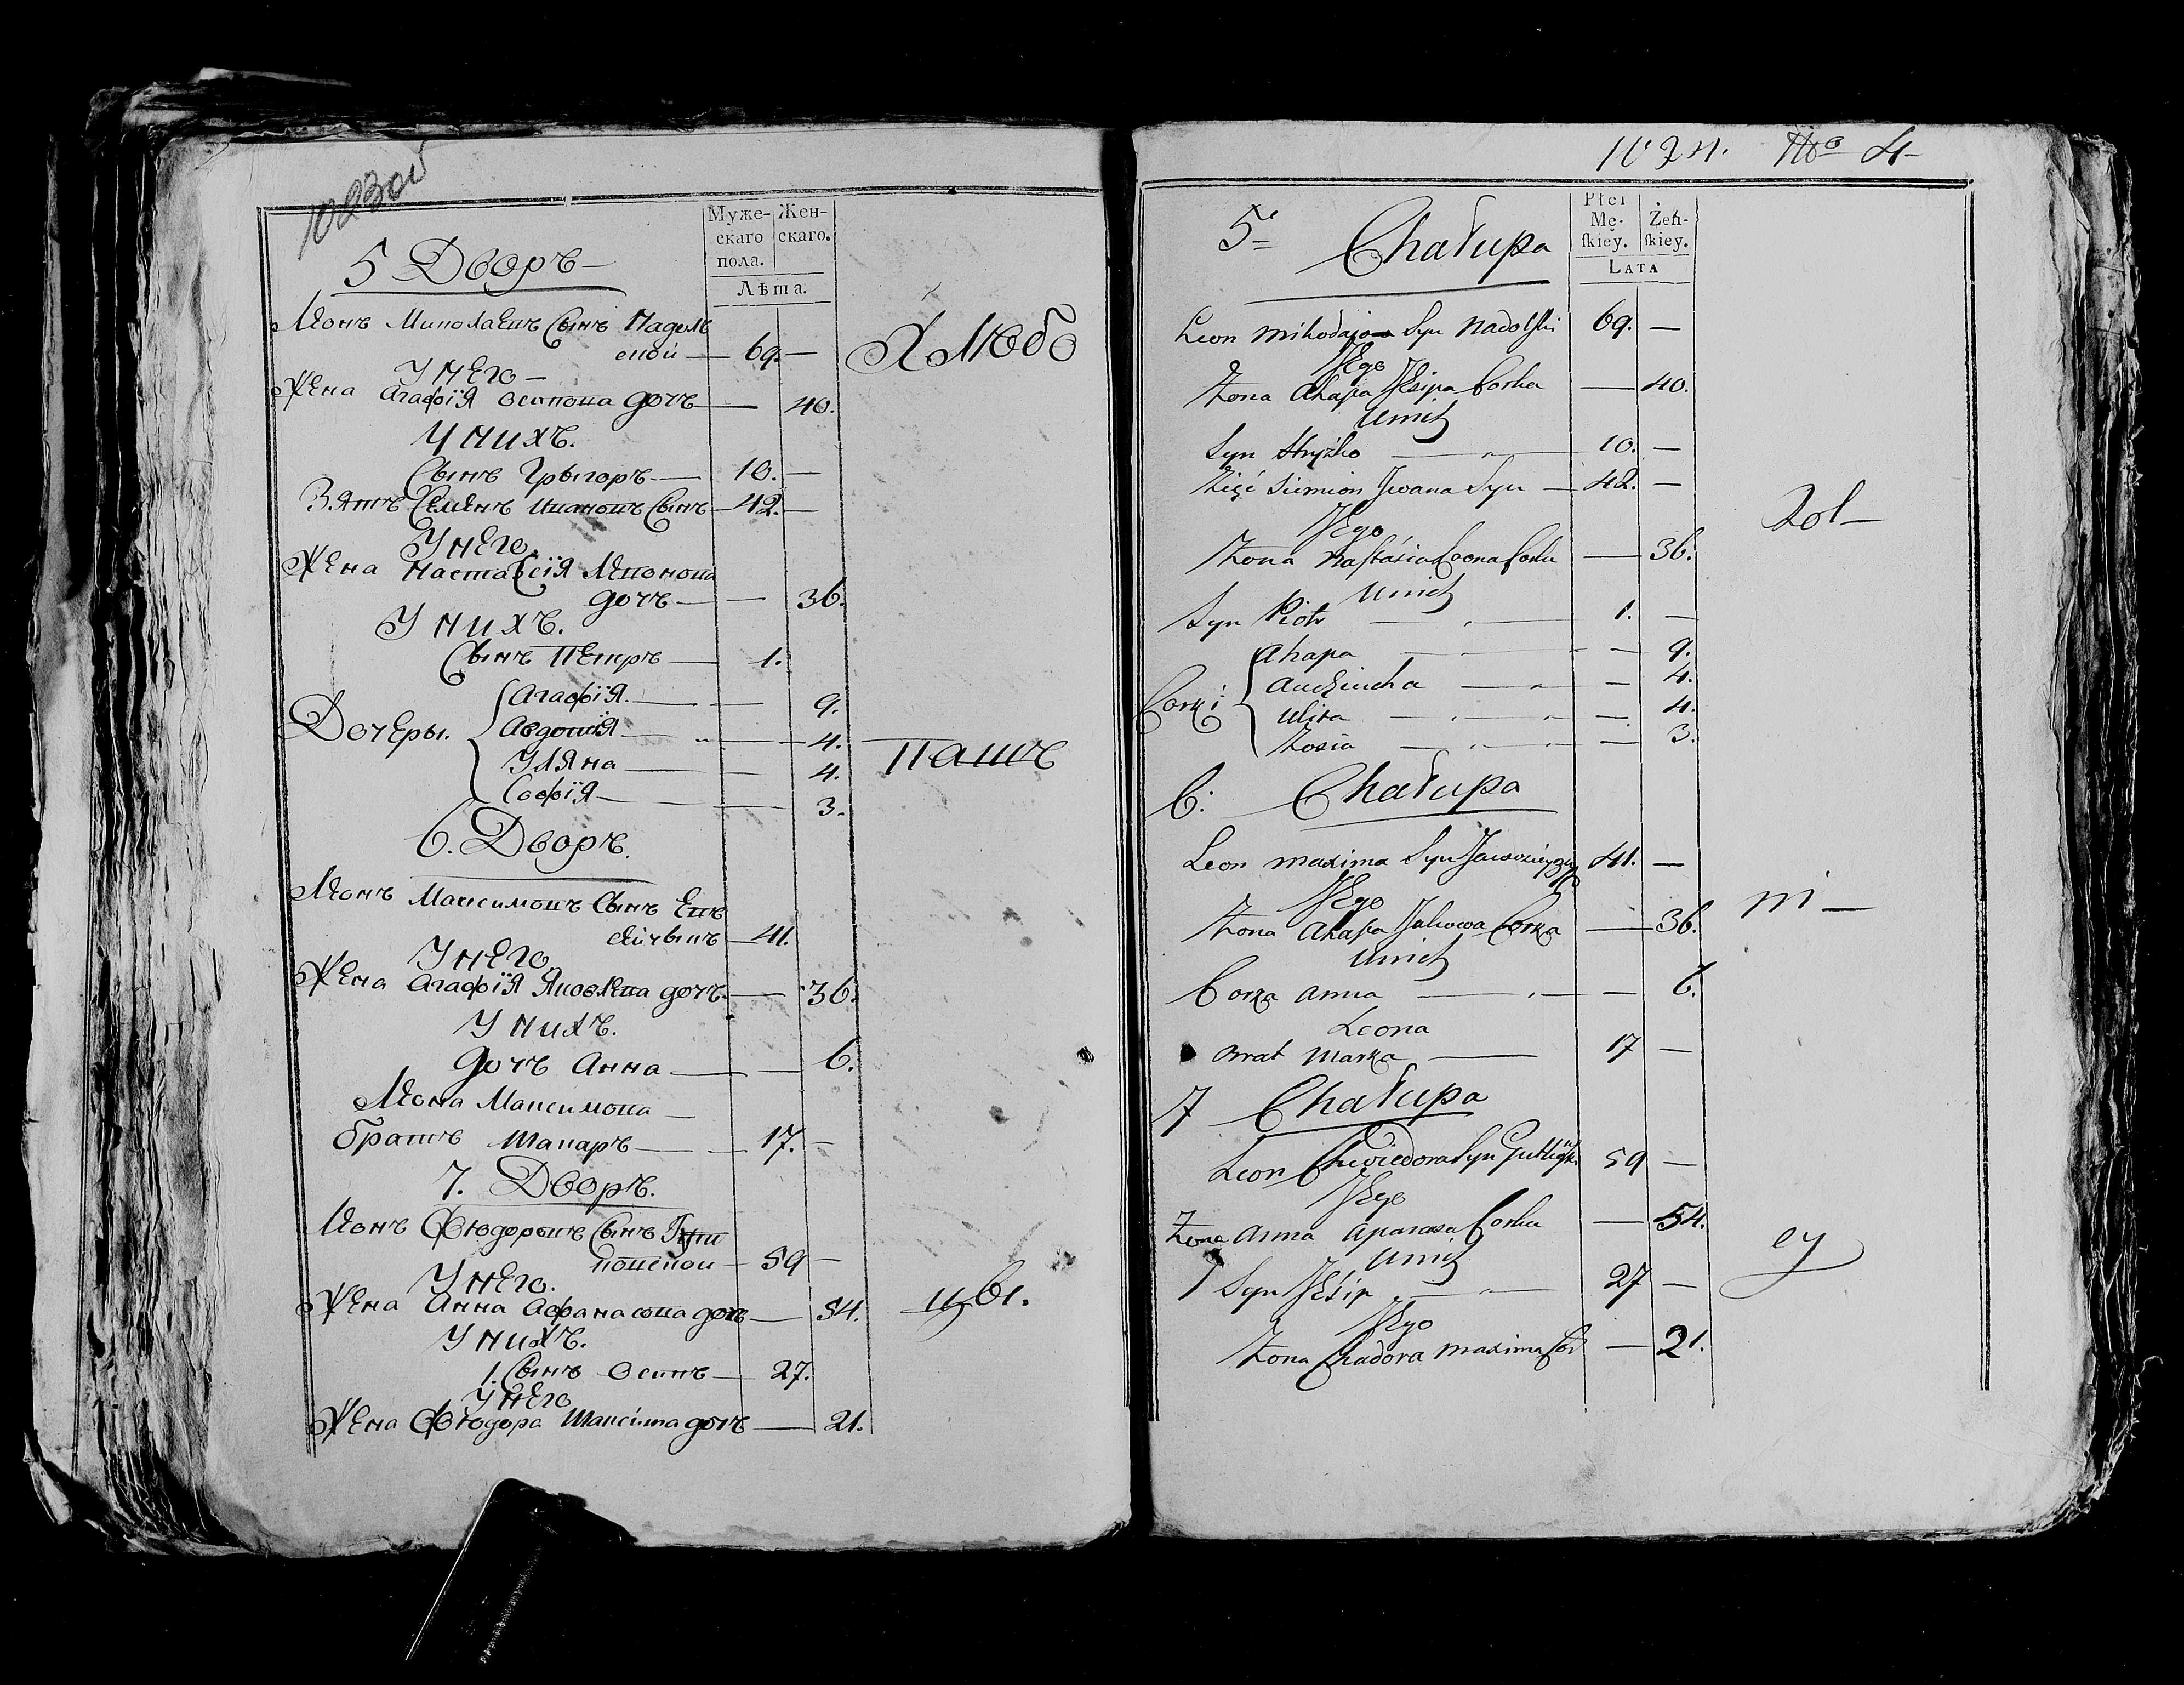 5 Дворъ
Муже-
скаго
пола.
Жен-
скаго.
Лѣта.
Леонъ Миколаевъ Сынъ Надоль
ской — 69. —
У него —
Жена Агафїя Осипова дочъ — 40.
У нихъ.
Сынъ Грыгоръ — 10. —
Зять Семенъ Ивановъ Сынъ — 42. —
У него.
Жена Настасїя Леонова
дочъ — — 36.
У нихъ.
Сынъ Петръ — 1.
Дочеры.
Агафїя. — — 9.
Авдотїя — — 4.
Уляна — — 4.
Софїя — — 3.
6. Дворъ.
Леонъ Максимовъ Сынъ
41.
У него
Жена Агафїя Яковлева дочъ — 36.
У нихъ.
дочъ Анна — — 6.
Леона Максимова —
братъ Макаръ — 17. —
7. Дворъ.
Леонъ Фѣодоровъ Сынъ
59 —
У него.
Жена Анна Афанасова дочъ — 54.
У нихъ.
1. Сынъ Осипъ — 27.
У него
Жена Фѣодора Максима дочъ — 21.
Любо
пашъ
No 4
5 Chałupa
Płci
Mę-
skiey.
Żeń-
skiey.
LATA
Leon Mikołajo Syn Nadolski 69. —
Jego
Żona Ahapa Jesipa Corka — 40.
U nich
Syn Hryźko — 10. —
Zięć Siemion Jwana Syn — 42. —
Jego
Żona Nastazia Leona Corka — 36.
U nich
Syn Piotr — 1. —
Corki
Ahapa — — 9.
— — 4.
Ulita — — 4.
Zosia — — 3.
6. Chałupa
Leon Maxima Syn 41. —
Jego
Żona Ahapa Jakowa Corka — 36.
U nich
Corka Anna — — 6.
Leona
Brat Marka — 17 —
7 Chałupa
Leon Chwiedora Syn 59 —
Jego
Żona Anna Apanasa Corka — 54.
U nich
1 Syn Jesip — 27 —
Jego
Żona Chadora Maxima Cor — 21.
ni —
ey